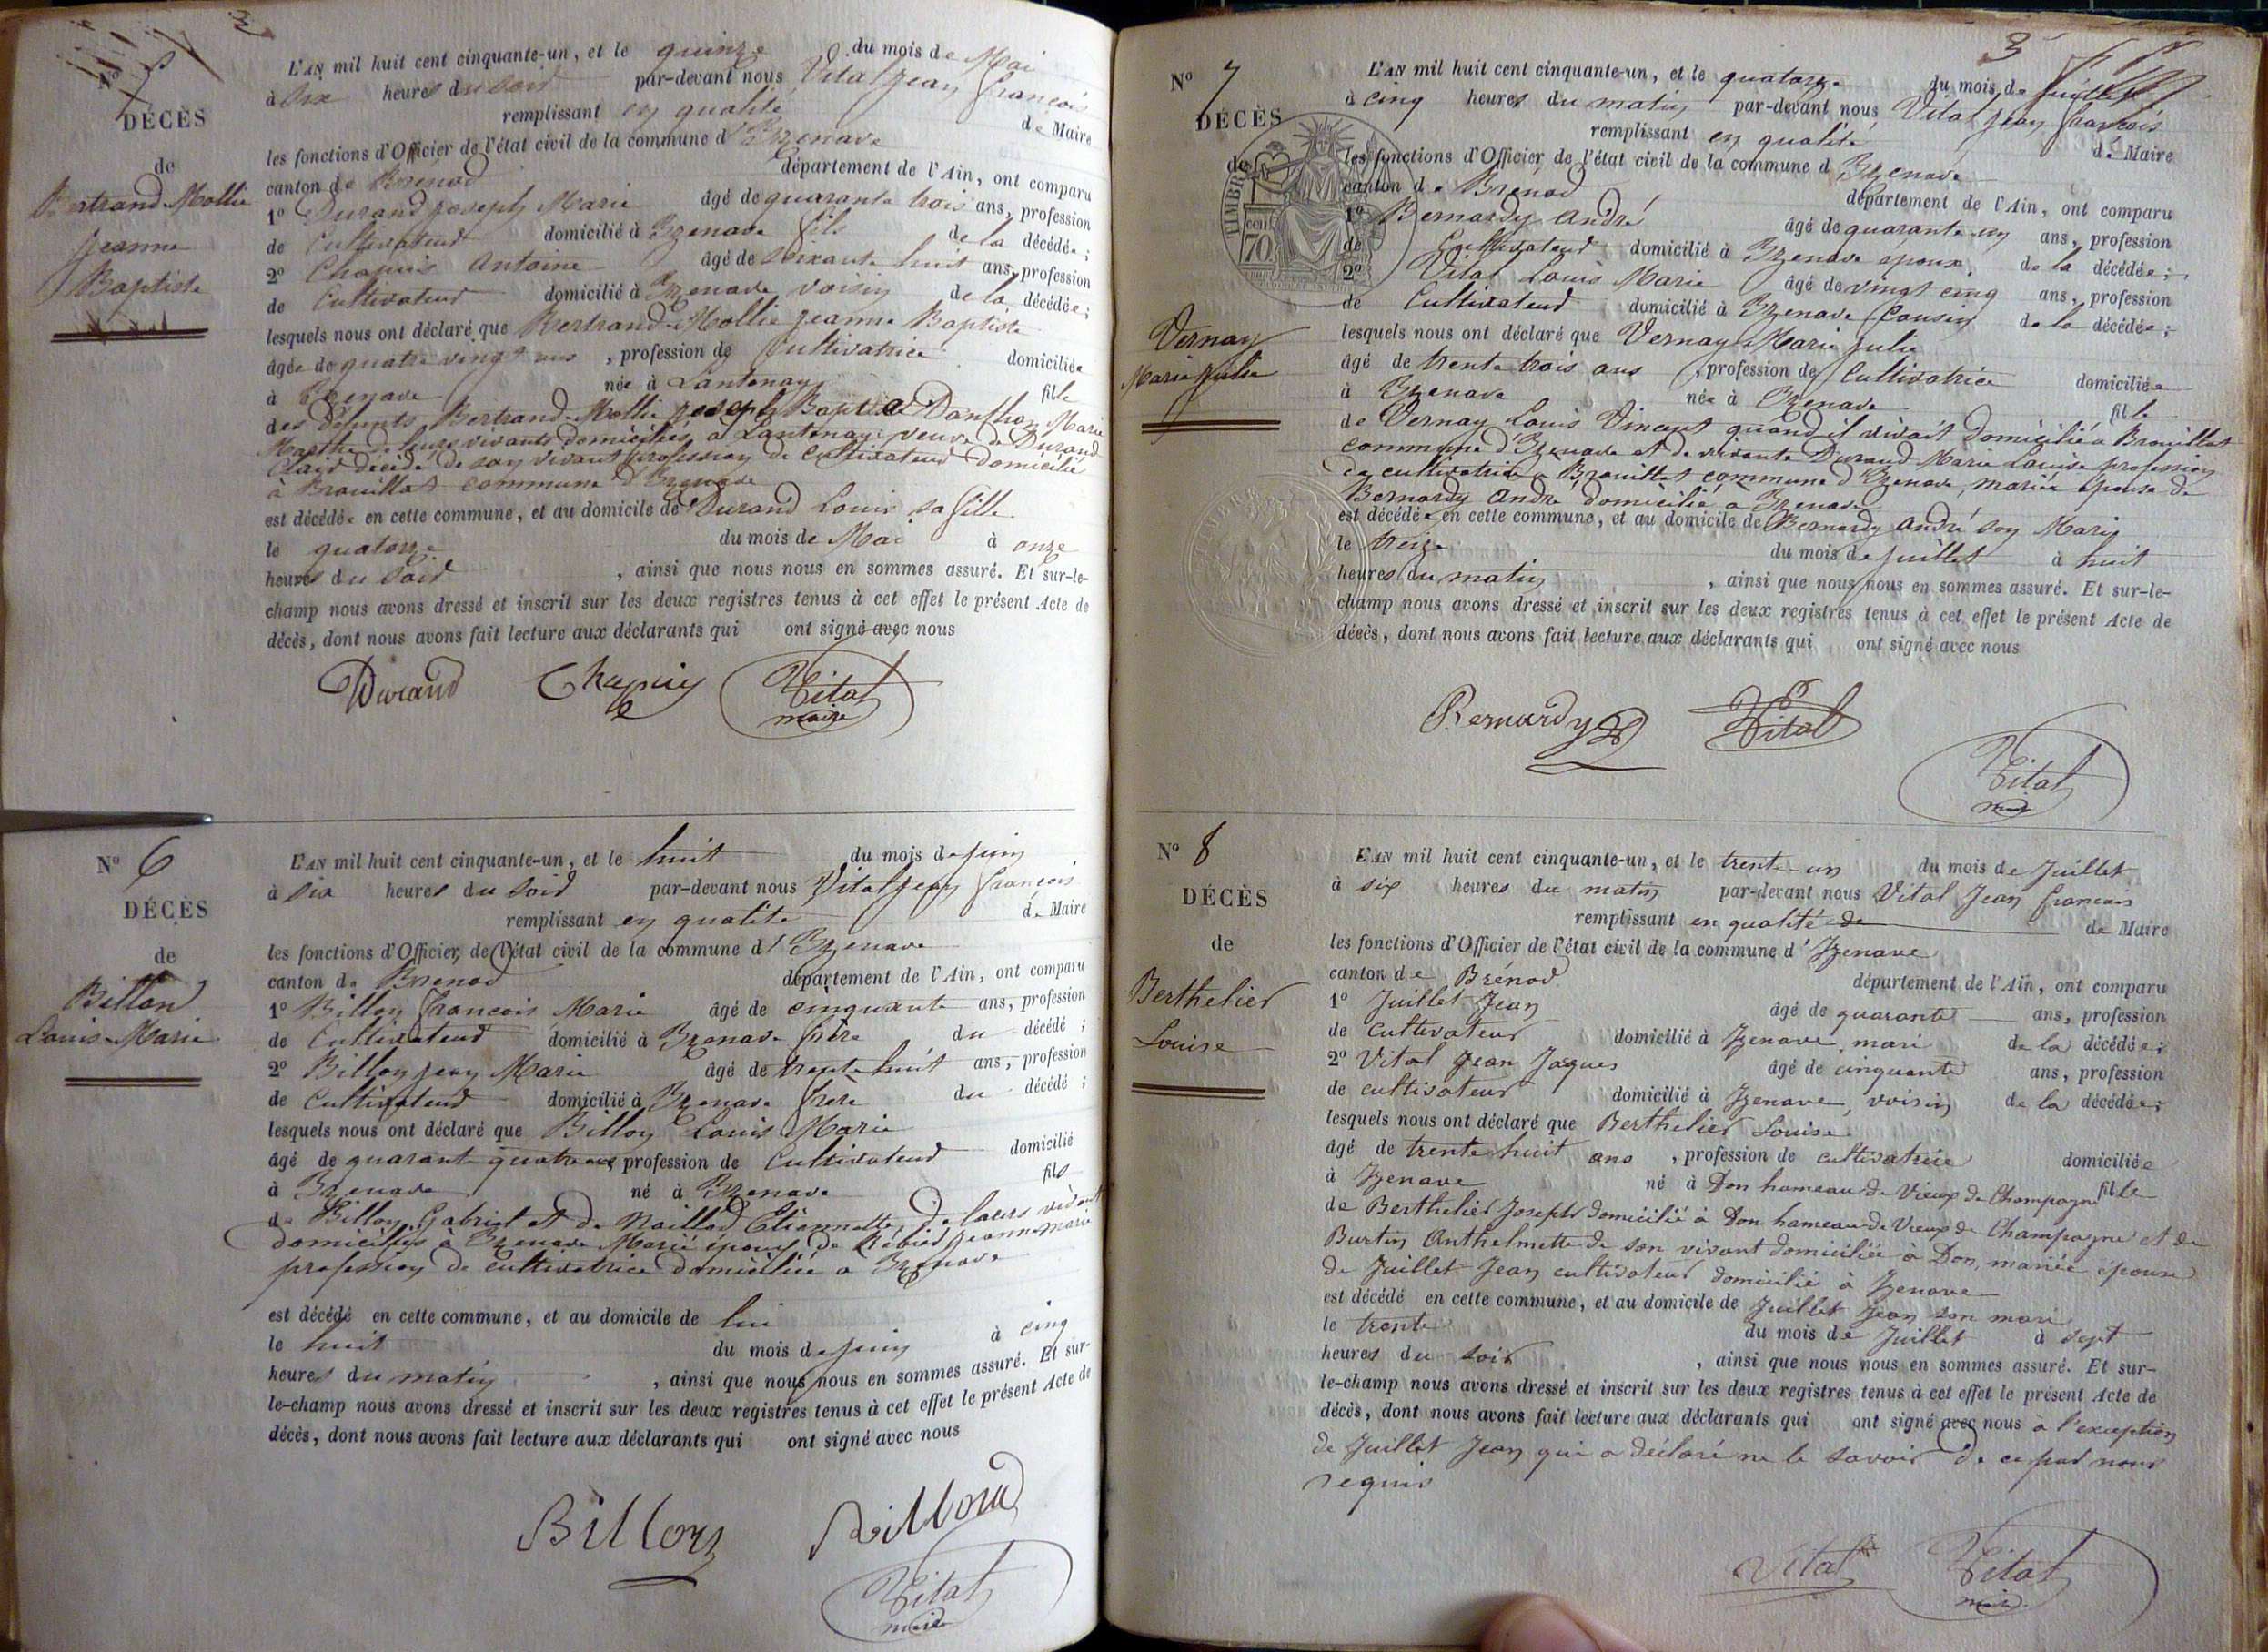 Nº 5
DÉCÈS
de
Bertrand-Mollie
Jeanne
Baptiste
L'AN mil huit cent cinquante-un, et le quinze du mois de Mai
à six heures du soir par-devant nous Vital Jean françois
remplissant en qualité de Maire
les fonctions d'Officier de l'état civil de la commune d'Izenave
canton de Brénod département de l'Ain, ont comparu
1º Durand joseph Marie âgé de quarante trois ans, profession
de Cultivateur domicilié à Izenave fils de la décédée;
2º Chapuis Antoine âgé de soixante huit ans, profession
de Cultivateur domicilié à Izenave voisin de la décédée;
lesquels nous ont déclaré que Bertrand-Mollie jeanne Baptiste
âgée de quatre vingt ans, profession de Cultivatrice domiciliée
à Izenave née à Lantenay fille
des défunts Bertrand-Mollie joseph Baptiste Danthon Marie
Marthe de leurs vivants domiciliés à Lantenay veuve de Durand
Claud décédé de son vivant profession de Cultivateur domicilié
à Brouillat commune d'Izenave
est décédée en cette commune, et au domicile de Durand Louis sa fille
le quatorze du mois de Mai à onze
heures du soir, ainsi que nous nous en sommes assuré. Et sur-le-
champ nous avons dressé et inscrit sur les deux registres tenus à cet effet le présent Acte de
décès, dont nous avons fait lecture aux déclarants qui ont signé avec nous
Durand Chapuis Vital
maire
Nº 6
DÉCÈS
de
Billon
Louis-Marie
L'AN mil huit cent cinquante-un, et le huit du mois de juin
à six heures du soir par-devant nous Vital jean françois
remplissant en qualité de Maire
les fonctions d'Officier de l'état civil de la commune d'Izenave
canton de Brenod département de l'Ain, ont comparu
1º Billon françois Marie âgé de cinquante ans, profession
de Cultivateur domicilié à Izenave frère du décédé;
2º Billon jean Marie âgé de trente huit ans, profession
de Cultivateur domicilié à Izenave frère du décédé;
lesquels nous ont déclaré que Billon Louis Marie
âgé de quarante quatre ans profession de Cultivateur domicilié
à Izenave né à Izenave fils
de Billon Gabriel et de Maillad Etiennette, de leurs vivant
domiciliés à Izenave Marié époux de jeanne marie
profession de cultivatrice domiciliée à Izenave
est décédé en cette commune, et au domicile de lui
le huit du mois de juin à cinq
heures du matin, ainsi que nous nous en sommes assuré. Et sur-
le-champ nous avons dressé et inscrit sur les deux registres tenus à cet effet le présent Acte de
décès, dont nous avons fait lecture aux déclarants qui ont signé avec nous
Billon Billon
Vital
maire
3
Nº 7
DÉCÈS
de
Vernay
Marie julie
L'AN mil huit cent cinquante-un, et le quatorze du mois de juillet
à cinq heures du matin par-devant nous Vital jean françois
remplissant en qualité de Maire
les fonctions d'Officier de l'état civil de la commune d Izenave
canton de Brénod département de l'Ain, ont comparu
1º Bernardy André âgé de quarante un ans, profession
de Cultivateur domicilié à Izenave époux de la décédée;
2º Vital Louis Marie âgé de vingt cinq ans, profession
de Cultivateur domicilié à Izenave Cousin de la décédée;
lesquels nous ont déclaré que Vernay Marie julie
âgé de trente trois ans, profession de Cultivatrice domiciliée
à Izenave née à Izenave fille
de Vernay Louis Vincent quand il vivait domicilié à Brouillat
commune d'Izenave et de vivante Durand Marie Louise profession
de cultivatrice à Brouillat commune d'Izenave, mariée épouse de
Bernardy André domicilié à Izenave
est décédée en cette commune, et au domicile de Bernardy André son Mari
le treize du mois de juillet à huit
heures du matin, ainsi que nous nous en sommes assuré. Et sur-le-
champ nous avons dressé et inscrit sur les deux registres tenus à cet effet le présent Acte de
décès, dont nous avons fait lecture aux déclarants qui ont signé avec nous
Bernardy Vital
Vital
maire
TIMBRE
70
Nº 8
DÉCÈS
de
Berthelier
Louise
L'AN mil huit cent cinquante-un, et le trente-un du mois de Juillet
à six heures du matin par-devant nous Vital Jean francois
remplissant en qualité de de Maire
les fonctions d'Officier de l'état civil de la commune d'Izenave
canton de Brénod département de l'Ain, ont comparu
1º Juillet Jean âgé de quarante ans, profession
de cultivateur domicilié à Izenave, mari de la décédée;
2º Vital Jean Jaques âgé de cinquante ans, profession
de cultivateur domicilié à Izenave, voisin de la décédée;
lesquels nous ont déclaré que Berthelier Louise
âgé de trente huit ans, profession de cultivatrice domiciliée
à Izenave né à Don hameau de Vieux de Champagne fille
de Berthelier Joseph domicilié à Don hameau de Vieux de Champagne et de
Burtin Anthelmette de son vivant domiciliée à Don, mariée épouse
de Juillet Jean cultivateur domicilié à Izenave
est décédé en cette commune, et au domicile de Juillet Jean son mari
le trente du mois de Juillet à sept
heures du soir, ainsi que nous nous en sommes assuré. Et sur-
le-champ nous avons dressé et inscrit sur les deux registres tenus à cet effet le présent Acte de
décès, dont nous avons fait lecture aux déclarants qui ont signé avec nous à l'exception
de Juillet Jean qui a déclaré ne le savoir de ce par nous
requis
Vital Vital
maire